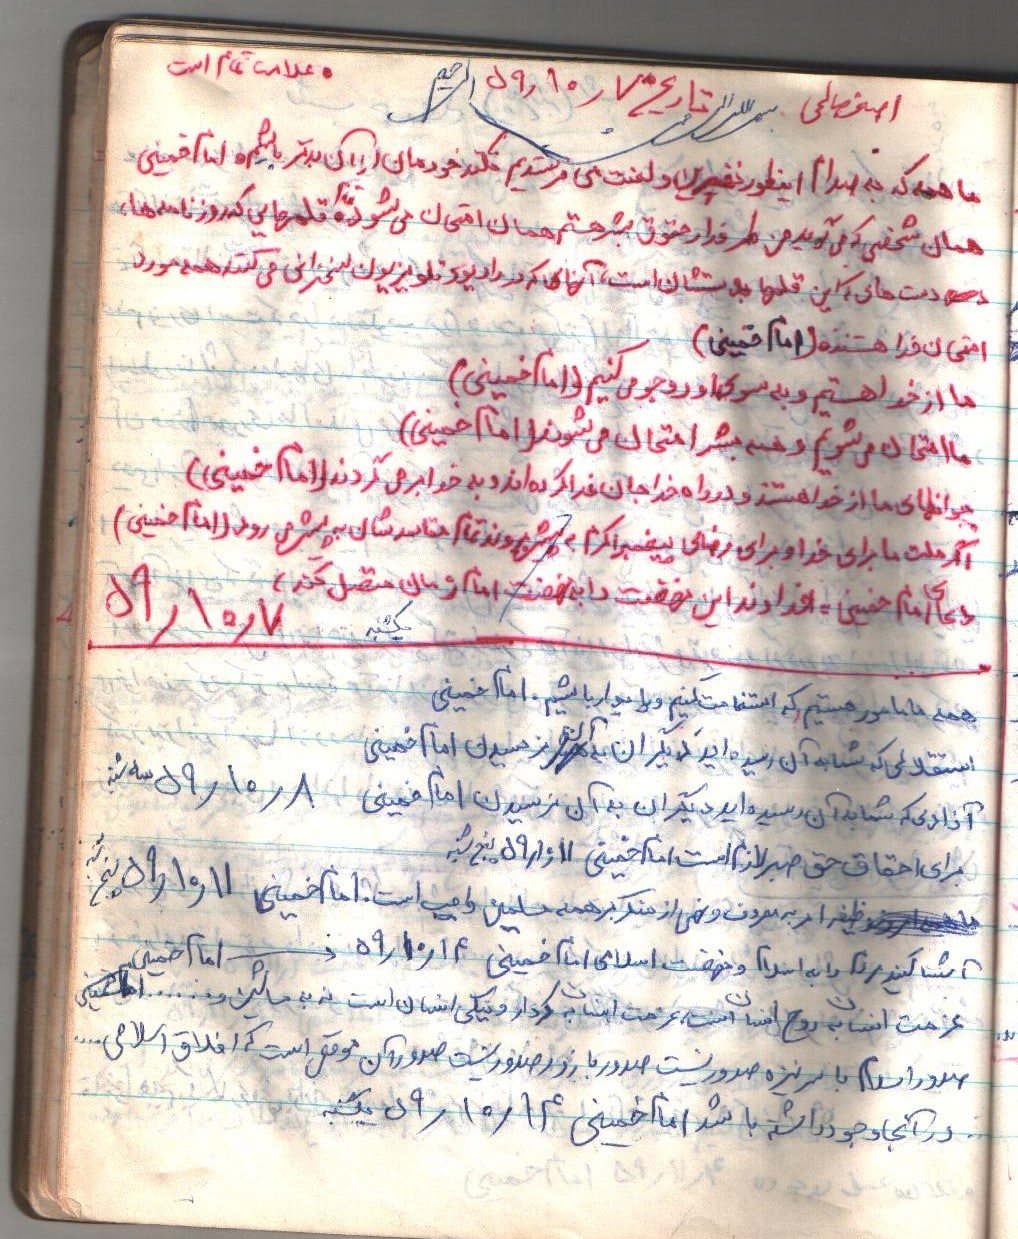 اصغر صالحی تاریخ ۷ ر ۱۰ ر ۵۹ • علامت تمام است
بسم الله الرحمن الرحیم
ما همه که به صدام اینطور نفرین و لعنت می فرستیم نکند خودمان از آن بدتر باشیم • امام خمینی
همان شخصی که می گوید من طرفدار حقوق بشر هستم همان امتحان می شود قلمهایی که روزنامه ها،
دست های که این قلمها بدستشان است، آنهای که در رادیو و تلویزیون سخنرانی می کنند همه مورد
امتحان خدا هستند (امام خمینی)
ما از خدا هستیم و به سوی او رجوع می کنیم (امام خمینی)
ما امتحان می شویم و همه بشر امتحان می شوند (امام خمینی)
جوانهای ما از خدا هستند و در راه خدا جان فدا کرده اند و به خدا بر می گردند (امام خمینی)
اگر ملت ما برای خدا و برای رضای پیغمبر اکرم به پیش روند تمام مقاصدشان به پیش می رود (امام خمینی)
دعای امام خمینی = خداوند این نهضت را به نهضت امام زمان متصل کند،
یکشنبه ۷ ر ۱۰ ر ۵۹
همه ما مامور هستیم که استقامت کنیم و امیدوار باشیم. امام خمینی
استقلالی که شما به آن رسیده اید دیگران به آن نرسیدن امام خمینی
آزادی که شما به آن رسیده اید دیگران به آن نرسیدن امام خمینی ۸ ر ۱۰ ر ۵۹ سه شنبه
برای احقاق حق صبر لازم است امام خمینی ۱۱ ر ۱۰ ر ۵۹ پنج شنبه
وظیفه امر به معروف و نهی از منکر بر همه مسلمین واجب است. امام خمینی ۱۱ ر ۱۰ ر ۵۹ پنج شنبه
آشنا کنید مردم را به اسلام و نهضت اسلامی امام خمینی ۱۴ ر ۱۰ ر ۵۹ امام خمینی
عزمت انسان به روح انسان است، عزمت انسان به کردار و نیکی انسان است نه به ماشین و..... امام خمینی
صدور اسلام با سر نیزه صدور نیست صدور با زور صدور نیست صدور آن موقع است که اخلاق اسلامی....
در آنجا وجود داشته باشد امام خمینی ۱۴ ر ۱۰ ر ۵۹ یکشنبه